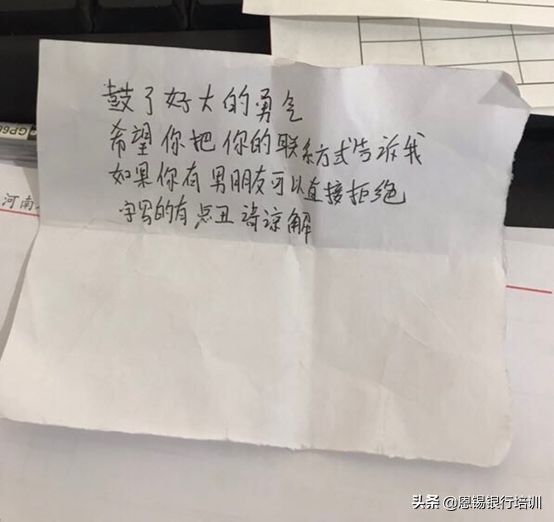 鼓了好大的勇气
希望你把你的联系方式告诉我
如果你有男朋友可以直接拒绝
字写的有点丑请谅解
河南
头条 @恩锡银行培训